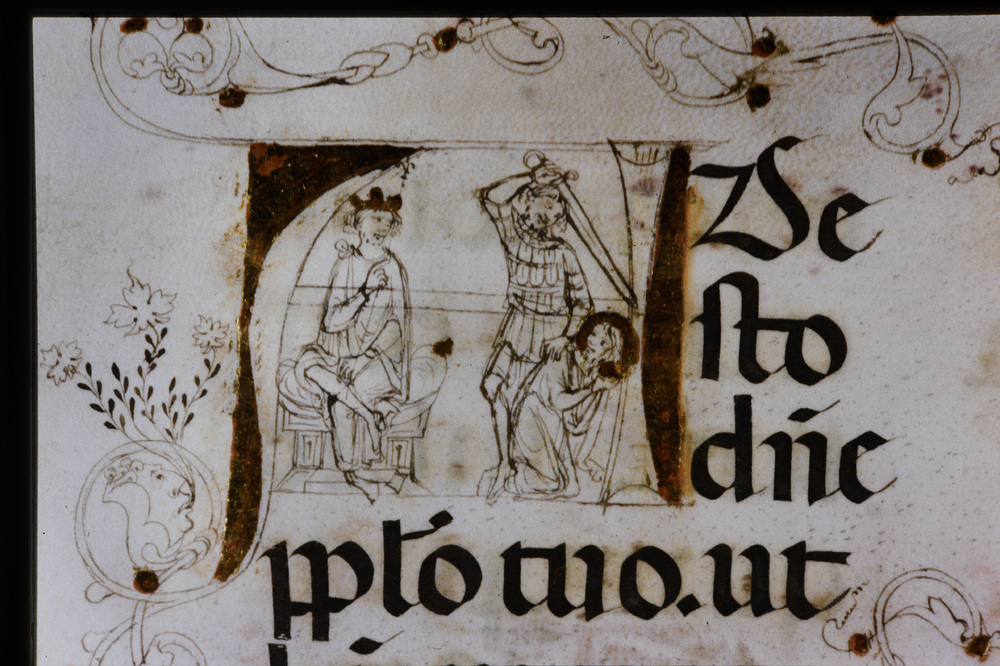 ADe
sto
dn̄e
ppło tuo. ut